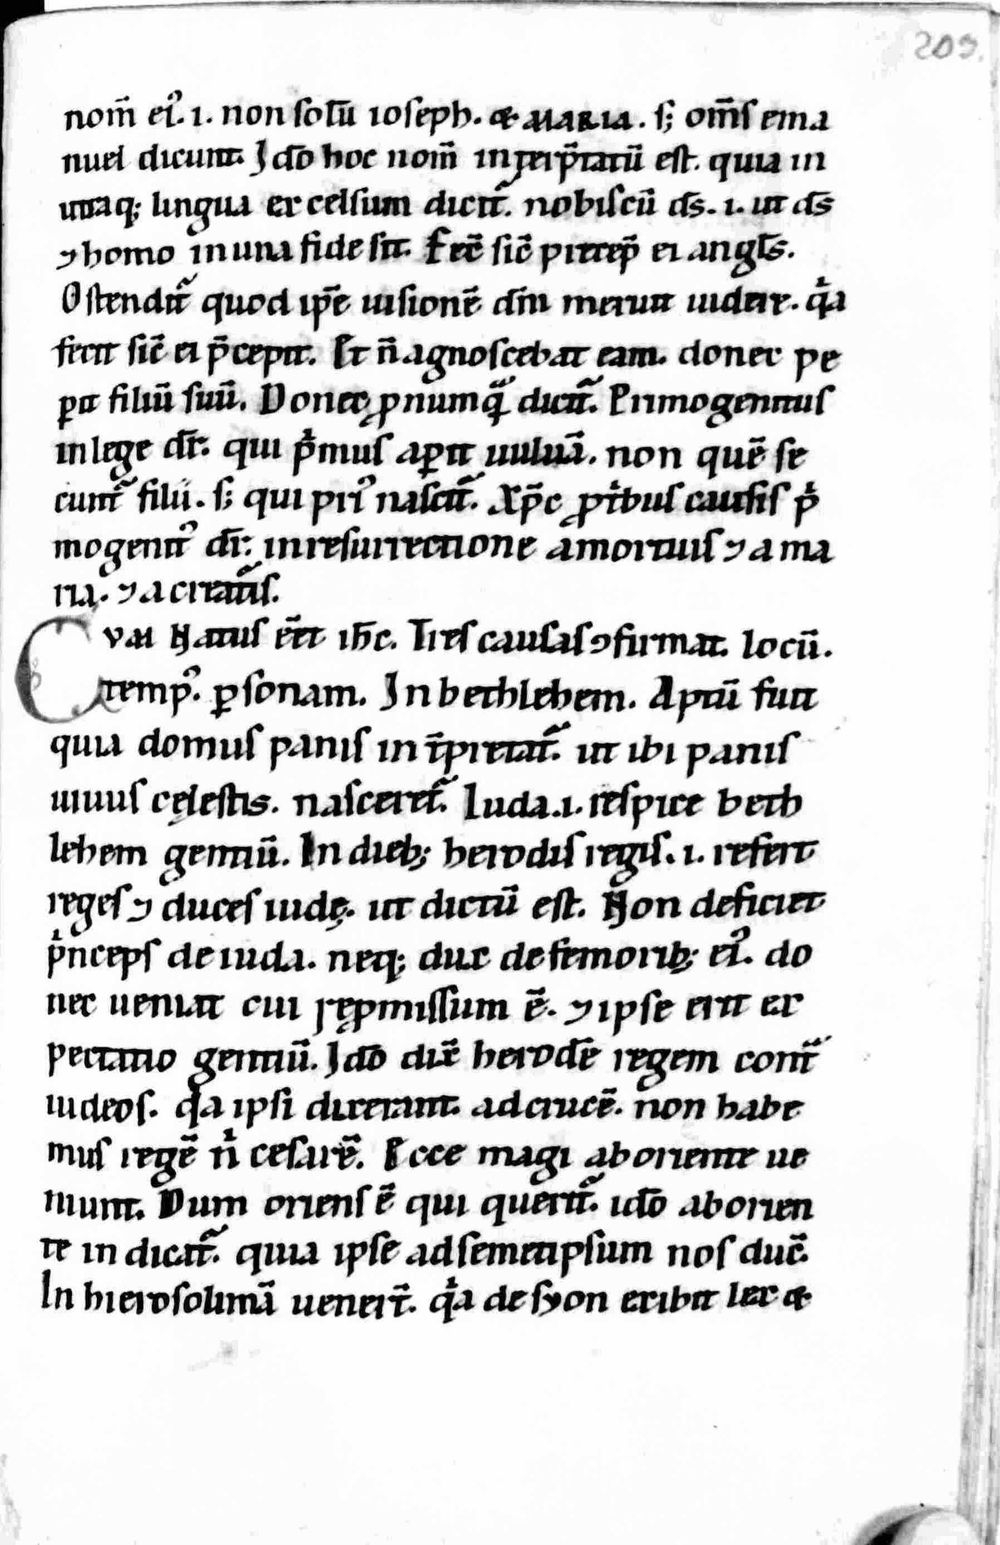 209.
nom̄ ei᾿. ı. non ſolū ıoſeph. & MARIA. ſ; om̄ſ ema
nuel dicunt. Ido̅ hoc nom̄ inṭerp̄tatū eſt. quia in
utraq; lingua excelſum dicit᷑. nobiſcū d̅s. ı. ut d̅s
⁊ homo in una fide ſit. Fec̄ ſic̄ p̄cep̄ ei angl̅s.
Oſtendit᷑ quod ip̅e uiſionē dn̄i meruit uidere. qͥa
fecit ſic̄ ei p̄cepit. Et n̄ agnoſcebat eam. donec pe
ꝑit filiū ſuū. Donec ꝓ numquā dicit᷑. Primogenituſ
in lege dr̄. qui pͥmuſ aꝑit uuluā. non quē ſe
cunt᷑ filii. ſ; qui pri᾿ naſcit᷑. Xp̅c ꝓ tͥbuſ cauſiſ pͥ
mogenit᾿ dr̄. in reſurrectione a mortuiſ ⁊ a ma
ria. ⁊ a creat᷑iſ.
CVM Natuſ ēēt ih̅c. Treſ cauſaſ ꝯfirmat. locū.
temp᾿. ꝑſonam. In bethlehem. Aptū fuit
quia domuſ paniſ int̄pretat᷑. ut ibi paniſ
uiuuſ cęleſtis. naſceret᷑. Iuda. ı. reſpice beth
lehem gentiū. In dieb; herodiſ regiſ. ı. refert
regeſ ⁊ duceſ iudę. ut dictū eſt. Non deficiet
pͥncepſ de iuda. neq; dux de femorib; ei᾿. do
nec ueniat cui rep̱miſſum ē. ⁊ ipſe erit ex
pectatio gentiū. Ido̅ dix̄ herodē regem cont᷑
iudeoſ. qͥa ipſi dixerant. ad crucē. non habe
muſ regē nͥ ceſarē. Ecce magi ab oriente ue
niunt. Dum orienſ ē qui querit᷑. ido̅ ab orien
te indicat᷑. quia ipſe ad ſemetipſum noſ duc̄.
In hieroſolimā uener̄t. qͥa de ſyon exibit lex &